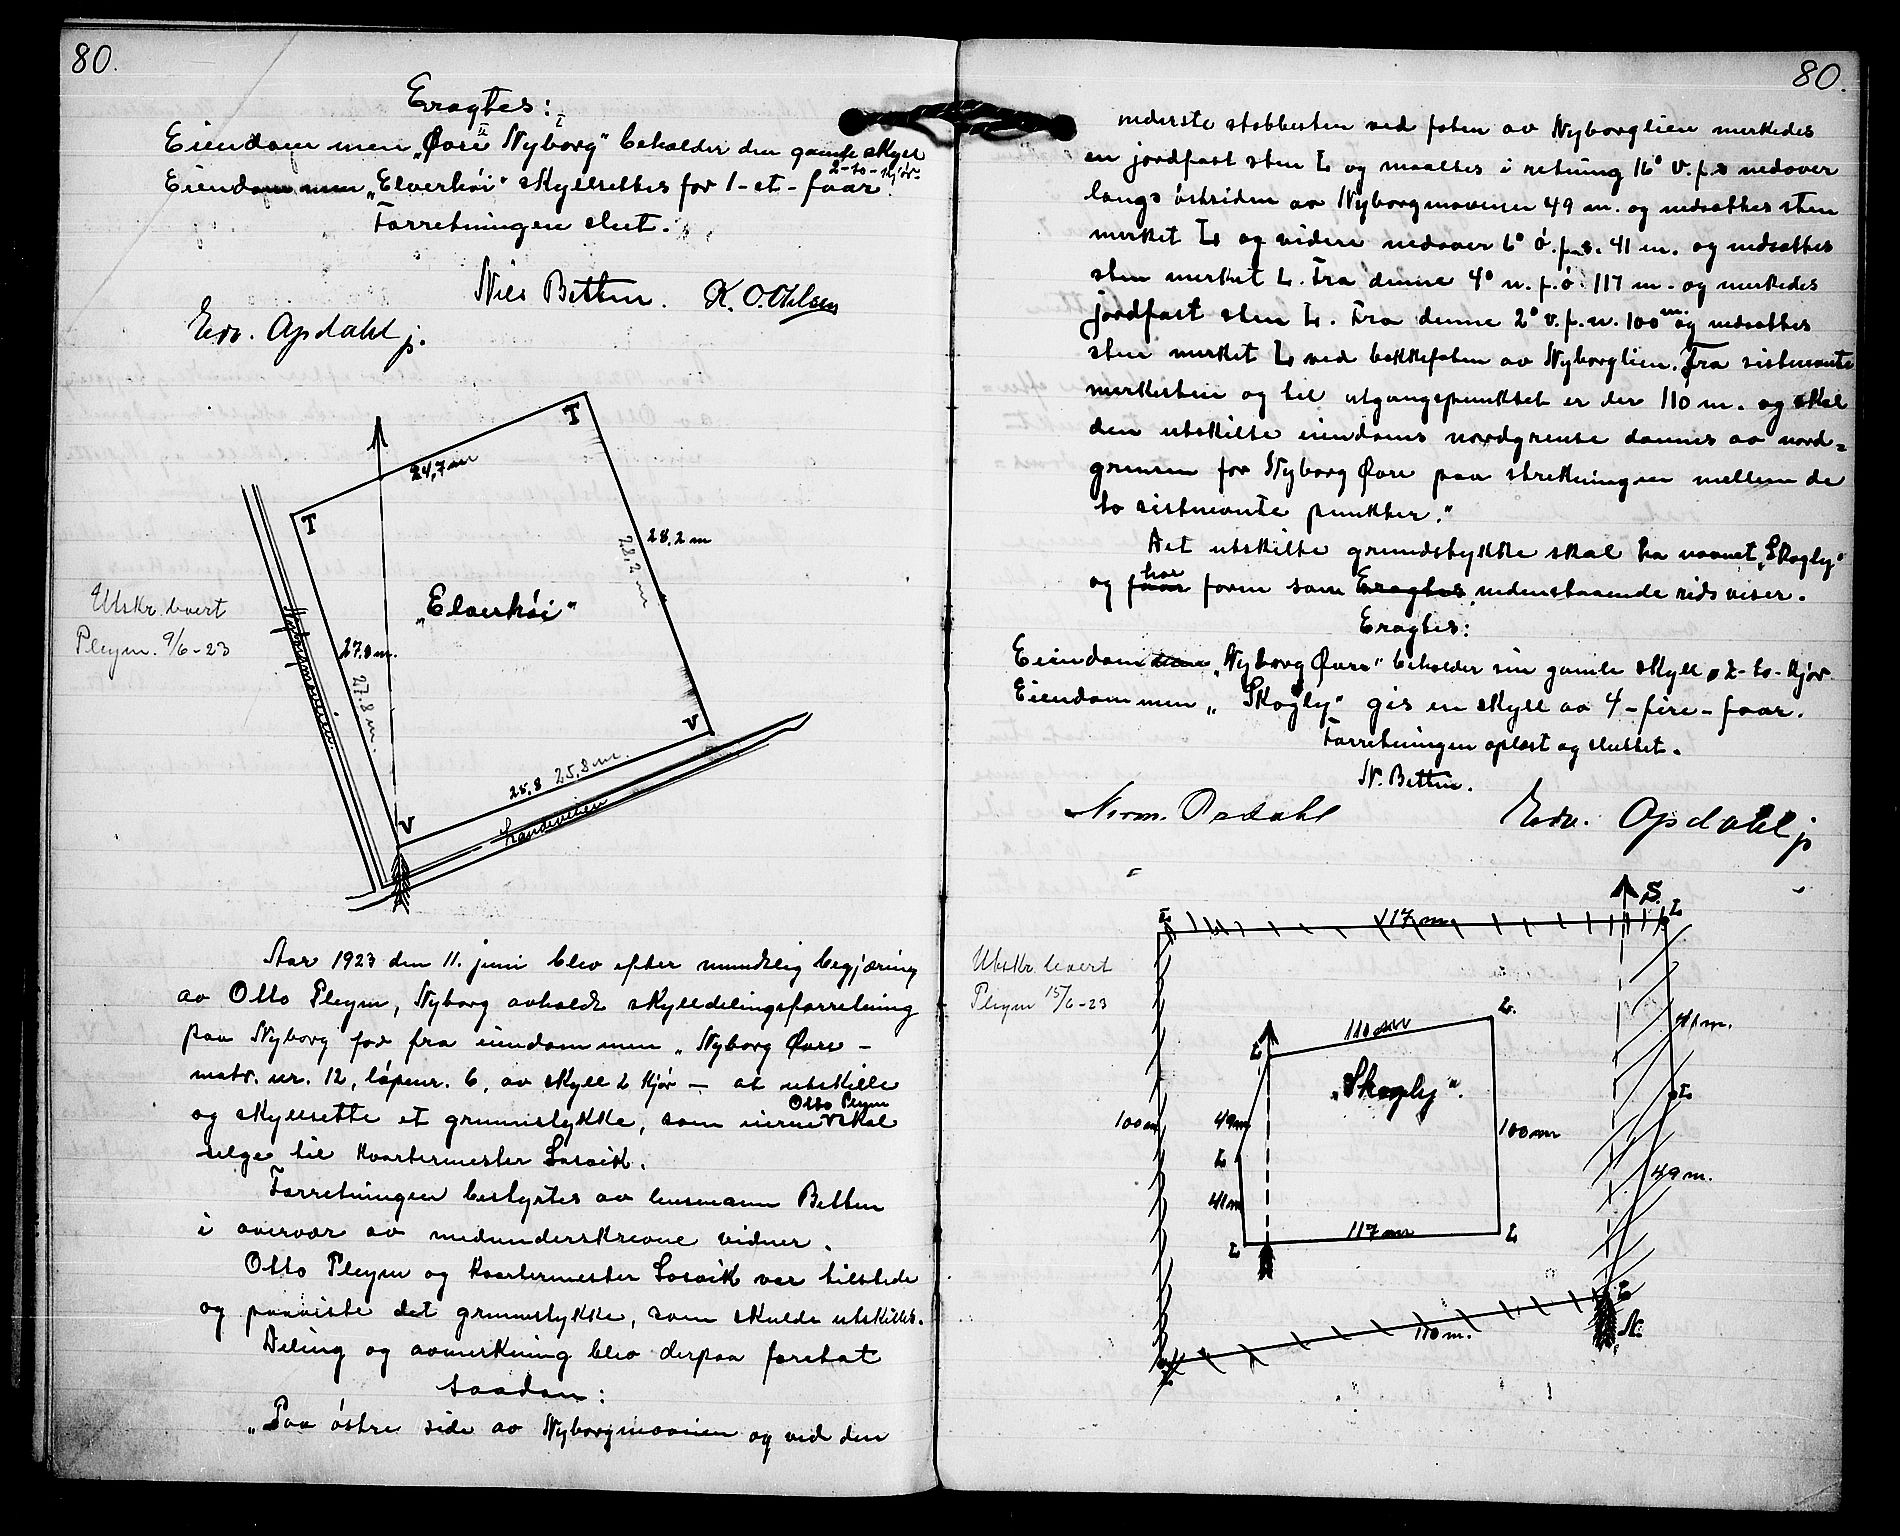 80.
Eragtes:
II I
Eiendommen „Øvre Nyborg" beholder den gamle skyld
2-to-kjør.
Eiendommen „Elverhöi" skyldsettes for 1-et-faar.
Forretningen slut.
Nils Betten. K. O. Olsen
Edv. Opdahl j.
T
T
24,7 m
28,2 m
28,2 m
„Elverhöi"
27.8 m.
27.8 m.
Utskr. levert
Pleym. 9/6-23
V
V
25,8 25,8 m.
Landeveien
Aar 1923 den 11. juni blev efter mundtlig begjæring
av Otto Pleym, Nyborg avholdt skylddelingsforretning
paa Nyborg for fra eiendommen „Nyborg Øvre –
matr. nr. 12, löpenr. 6, av skyld 2 kjör – at utskille
Otto Pleym
og skyldsette et grunnstykke, som eieren skal
selge til kvartermester Losvik.
Forretningen bestyrtes av lensmann Betten
i overvær av medunderskrevne vidner.
Otto Pleym og kvartermester Losvik var tilstede
og paaviste det grunnstykke, som skulde utskilles.
Deling og avmerkning blev derpaa foretat
saadan:
„Paa östre side av Nyborgmoveien og ved den
80.
nederste stabbesten ved foten av Nyborglien merkedes
en jordfast sten L og maaltes i retning 16° v.f.s nedover
langs östsiden av Nyborgmoveien 49 m. og nedsattes sten
merket L og videre nedover 6° ö.f.s. 41 m. og nedsattes
sten merket L. Fra denne 4° n.f.ö. 117 m. og merkedes
jordfast sten L. Fra denne 2° v.f.n. 100 m. og nedsattes
sten merket L ved bakkefoten av Nyborglien. Fra sistnevnte
merkesten og til utgangspunktet er der 110 m. og skal
den utskilte eiendoms nordgrense dannes av nord=
grensen for Nyborg Øvre paa strekningen mellem de
to sistnevnte punkter."
Det utskilte grundstykke skal ha navnet „Skogly"
har
og faar form som Eragtes nedenstaaende rids viser.
Eragtes:
Eiendommen „Nyborg Øvre" beholder sin gamle skyld, 2-to-kjör.
Eiendommen „Skogly" gis en skyld av 4-fire-faar.
Forretningen oplest og sluttet.
N. Betten.
Norm. Opdahl Edv. Opdahl j
Utskr. levert
Pleym 15/6-23
L
117 m.
S.
L
110 m
L.
L
„Skogly".
41 m.
L
100 m
49 m
100 m
L
49 m.
41 m
L
117 m
L
L
110 m.
N.
L